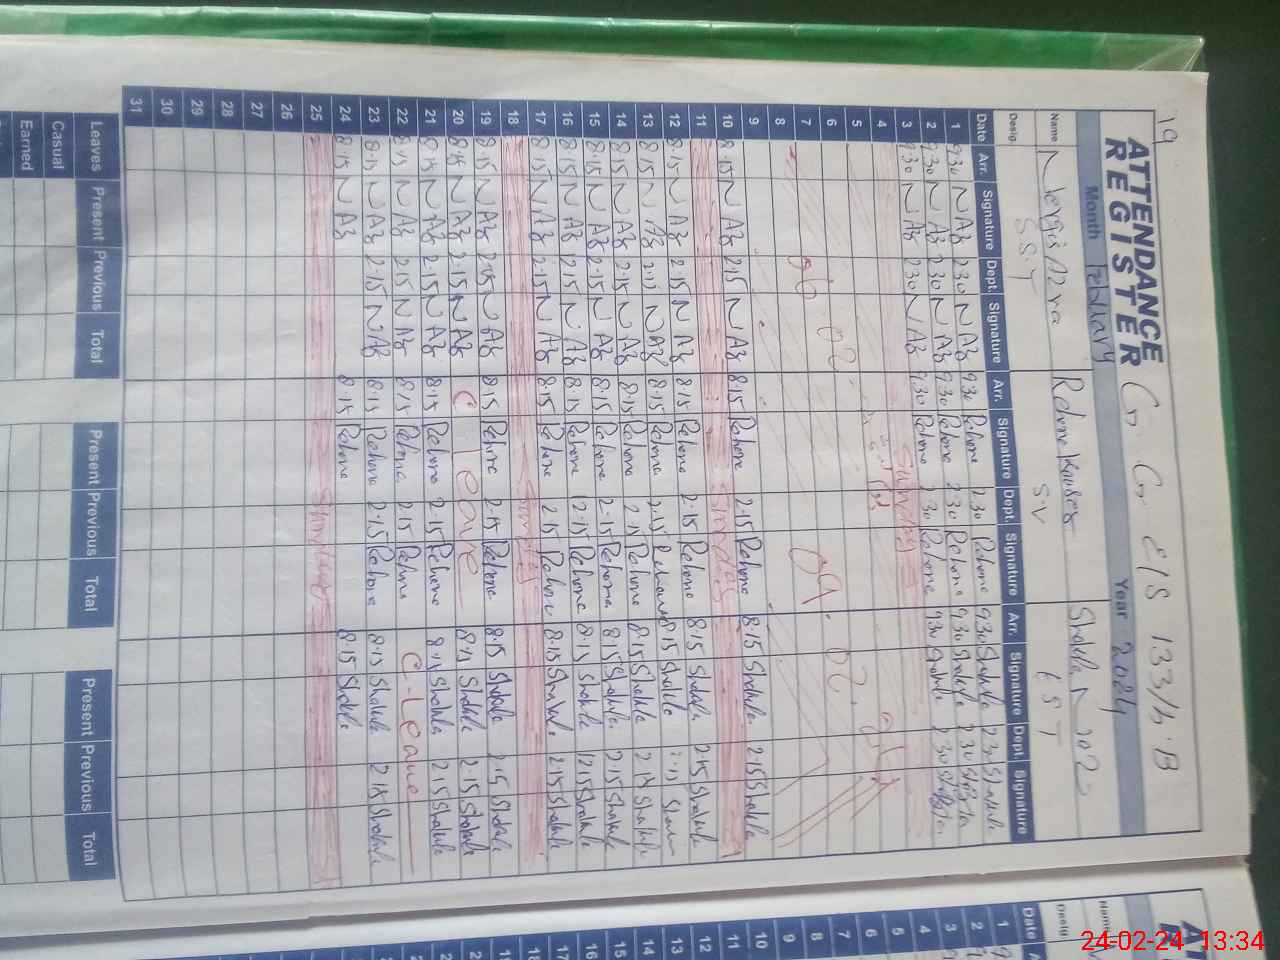 19
ATTENDANCE REGISTER
G. G. E/S 133/4.B
Month February Year 2024
Name Nergis Azra Rehana Kouser Shakila
Desig. S.S.T S.V E S T
Date Arr. Signature Dept. Signature Arr. Signature Dept. Signature Arr. Signature Dept. Signature
1 9.30 N Az 2.30 N Az 9.30 Rehana 2.30 Rehana 9.30 Shakila 2.30 Shakila
2 9.30 N Az 2.30 N Az 9.30 Rehana 2.30 Rehana 9.30 Shakila 2.30 Shakila
3 9.30 N Az 2.30 N Az 9.30 Rehana 2.30 Rehana 9.30 Shakila 2.30 Shakila
4 Sunday
5
6
7
8
9
10 8.15 N Az 2.15 N Az 8.15 Rehana 2.15 Rehana 8.15 Shakila 2.15 Shakila
11 Sunday
12 8.15 N Az 2.15 N Az 8.15 Rehana 2.15 Rehana 8.15 Shakila 2.15 Shakila
13 8.15 N Az 2.15 N Az 8.15 Rehana 2.15 Rehana 8.15 Shakila 2.15
14 8.15 N Az 2.15 N Az 8.15 Rehana 2.15 Rehana 8.15 Shakila 2.15 Shakila
15 8.15 N Az 2.15 N Az 8.15 Rehana 2.15 Rehana 8.15 Shakila 2.15 Shakila
16 8.15 N Az 12.15 N Az 8.15 Rehana 12.15 Rehana 8.15 Shakila 12.15 Shakila
17 8.15 N Az 2.15 N Az 8.15 Rehana 2.15 Rehana 8.15 Shakila 2.15 Shakila
18 Sunday
19 8.15 N Az 2.15 N Az 8.15 Rehana 2.15 Rehana 8.15 Shakila 2.15 Shakila
20 8.15 N Az 2.15 N Az C leave 8.15 Shakila 2.15 Shakila
21 8.15 N Az 2.15 N Az 8.15 Rehana 2.15 Rehana 8.15 Shakila 2.15 Shakila
22 8.15 N Az 2.15 N Az 8.15 Rehana 2.15 Rehana C-Leave
23 8.15 N Az 2.15 N Az 8.15 Rehana 2.15 Rehana 8.15 Shakila 2.15 Shakila
24 8.15 N Az 8.15 Rehana 8.15 Shakila
25 Sunday
26
27
28
29
30
31
Leaves Present Previous Total Present Previous Total Present Previous Total
Casual
Earned
Name
Desig
Date
1
2
3
4
5
6
7
8
9
10
11
12
13
14
15
16
17
18
24-02-24 13:34